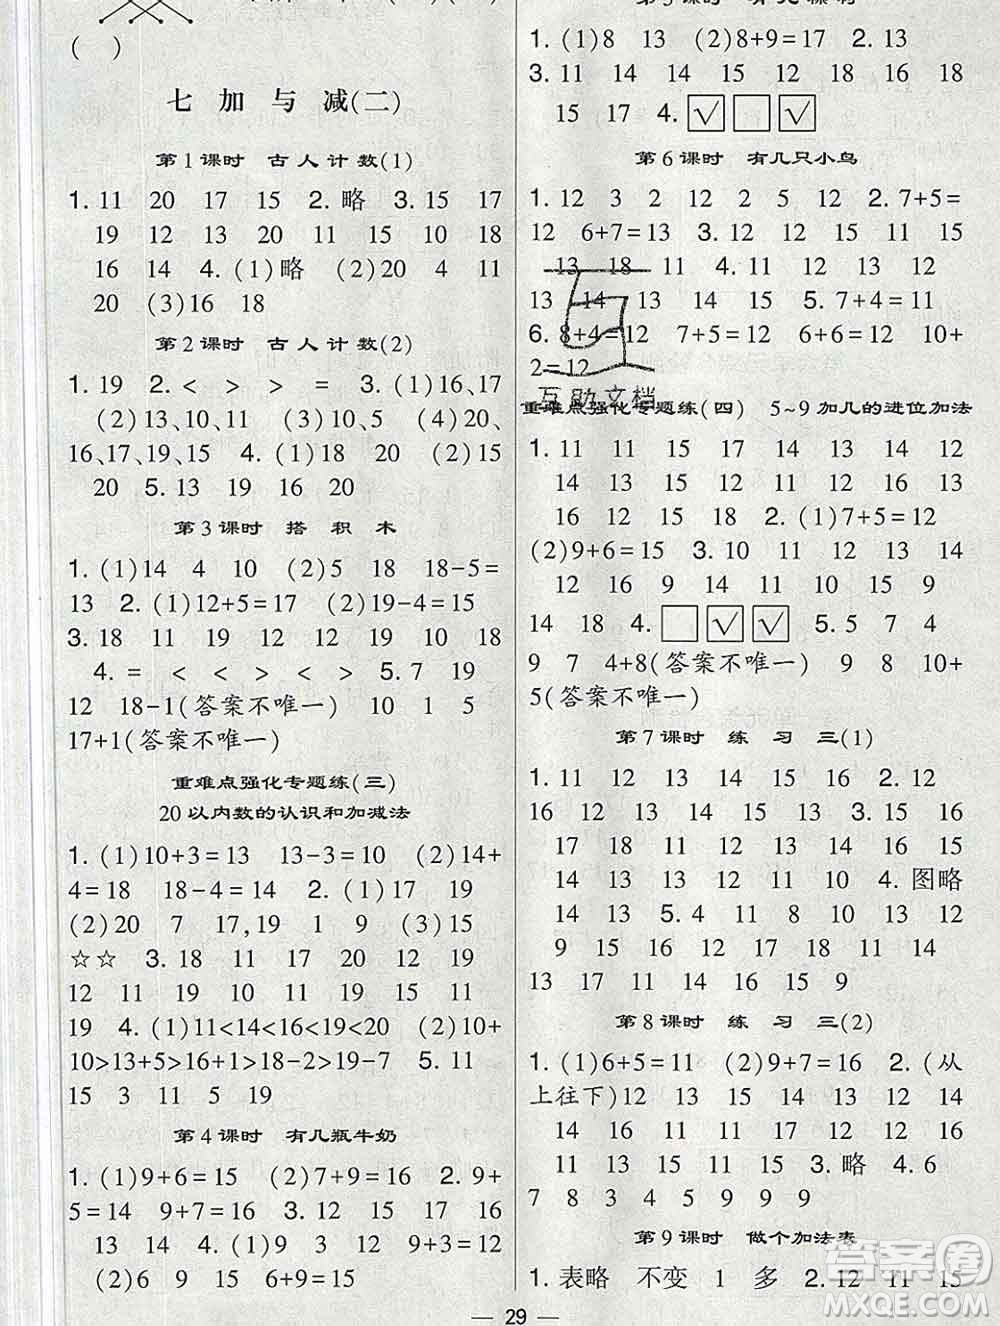 ( )
七 加 与 减(二)
第1课时 古人计数(1)
1. 11 20 17 15 2. 略 3. 15 17
19 12 13 13 20 11 10 18
16 14 4. (1)略 (2)20 4 11
20 (3)16 18
第2课时 古人计数(2)
1. 19 2. < > > = 3. (1)16、17
(2)13、10、11 (3)10、11 (4)20、
16、17、19、15 4. (1)18 20 (2)15
20 5. 13 19 16 20
第3课时 搭 积 木
1. (1)14 4 10 (2)5 18 18-5=
13 2. (1)12+5=17 (2)19-4=15
3. 18 11 19 12 11 10 18
4. = < < < > < 5. 7 19
12 18-1(答案不唯一) 10 1 5
17+1(答案不唯一)
重难点强化专题练(三)
20以内数的认识和加减法
1. (1)10+3=13 13-3=10 (2)14+
4=18 18-4=14 2. (1)17 19
(2)20 7 17,19 1 9 (3)15
☆☆ 3. 18 11 17 10 19
12 11 19 20 15 15 11
19 4. (1)11<14<16<19<20 (2)10+
10>13+5>17>11+5>18-2>19-7 5. 11
15 3 11 5 18 20
第4课时 有几瓶牛奶
1. (1)9+6=15 (2)7+9=16 2. 9+
5=14 9+7=16 3. 12 17 16
10 14 13 11 12 9+3=12
(2)6 9 15 6+9=15
1. (1)8 13 (2)8+9=17 2. 13
3. 11 14 14 14 12 18 16 18
15 17 4. ☑ ☐ ☑
第6课时 有几只小鸟
1. 12 3 2 12 2 5 12 2. 7+5=
12 6+7=13 3. 12 15 12 11 15
13 18 11 4. 11 13 12 12
13 14 13 14 15 5. 7+4=11
6. 8+4=12 7+5=12 6+6=12 10+
2=12
互助文档
重难点强化专题练(四) 5~9加几的进位加法
1. 11 11 15 17 14 13 14 12
12 18 13 12 11 13 11 13
16 12 15 18 2. (1)7+5=12
(2)9+6=15 3. 10 11 12 10
12 16 9 14 11 10 15 9
14 18 4. ☐ ☑ ☑ 5. 5 7 4
9 7 4+8(答案不唯一) 9 8 10+
5(答案不唯一)
第7课时 练 习 三(1)
1. 11 15 17 13 18 2. 12 12
16 12 13 13 13 3. 11 15 16
17 18 11 12 13 12 14 15
14 13 13 14 10 12 4. 图略
14 13 12 5. 4 11 8 10 13 12
9 15 9 15 16 18 11 14
13 17 11 14 12 15 9
第8课时 练 习 三(2)
1. (1)6+5=11 (2)9+7=16 2. (从
上往下)12 13 15 14 13 12 14
14 16 16 13 17 12 15 14
11 13 15 11 13 3. 略 4. 6
7 8 3 4 5 9 9 9
第9课时 做个加法表
1. 表略 不变 1 多 2. 12 11 15
29
答案圈
MXQE.COM